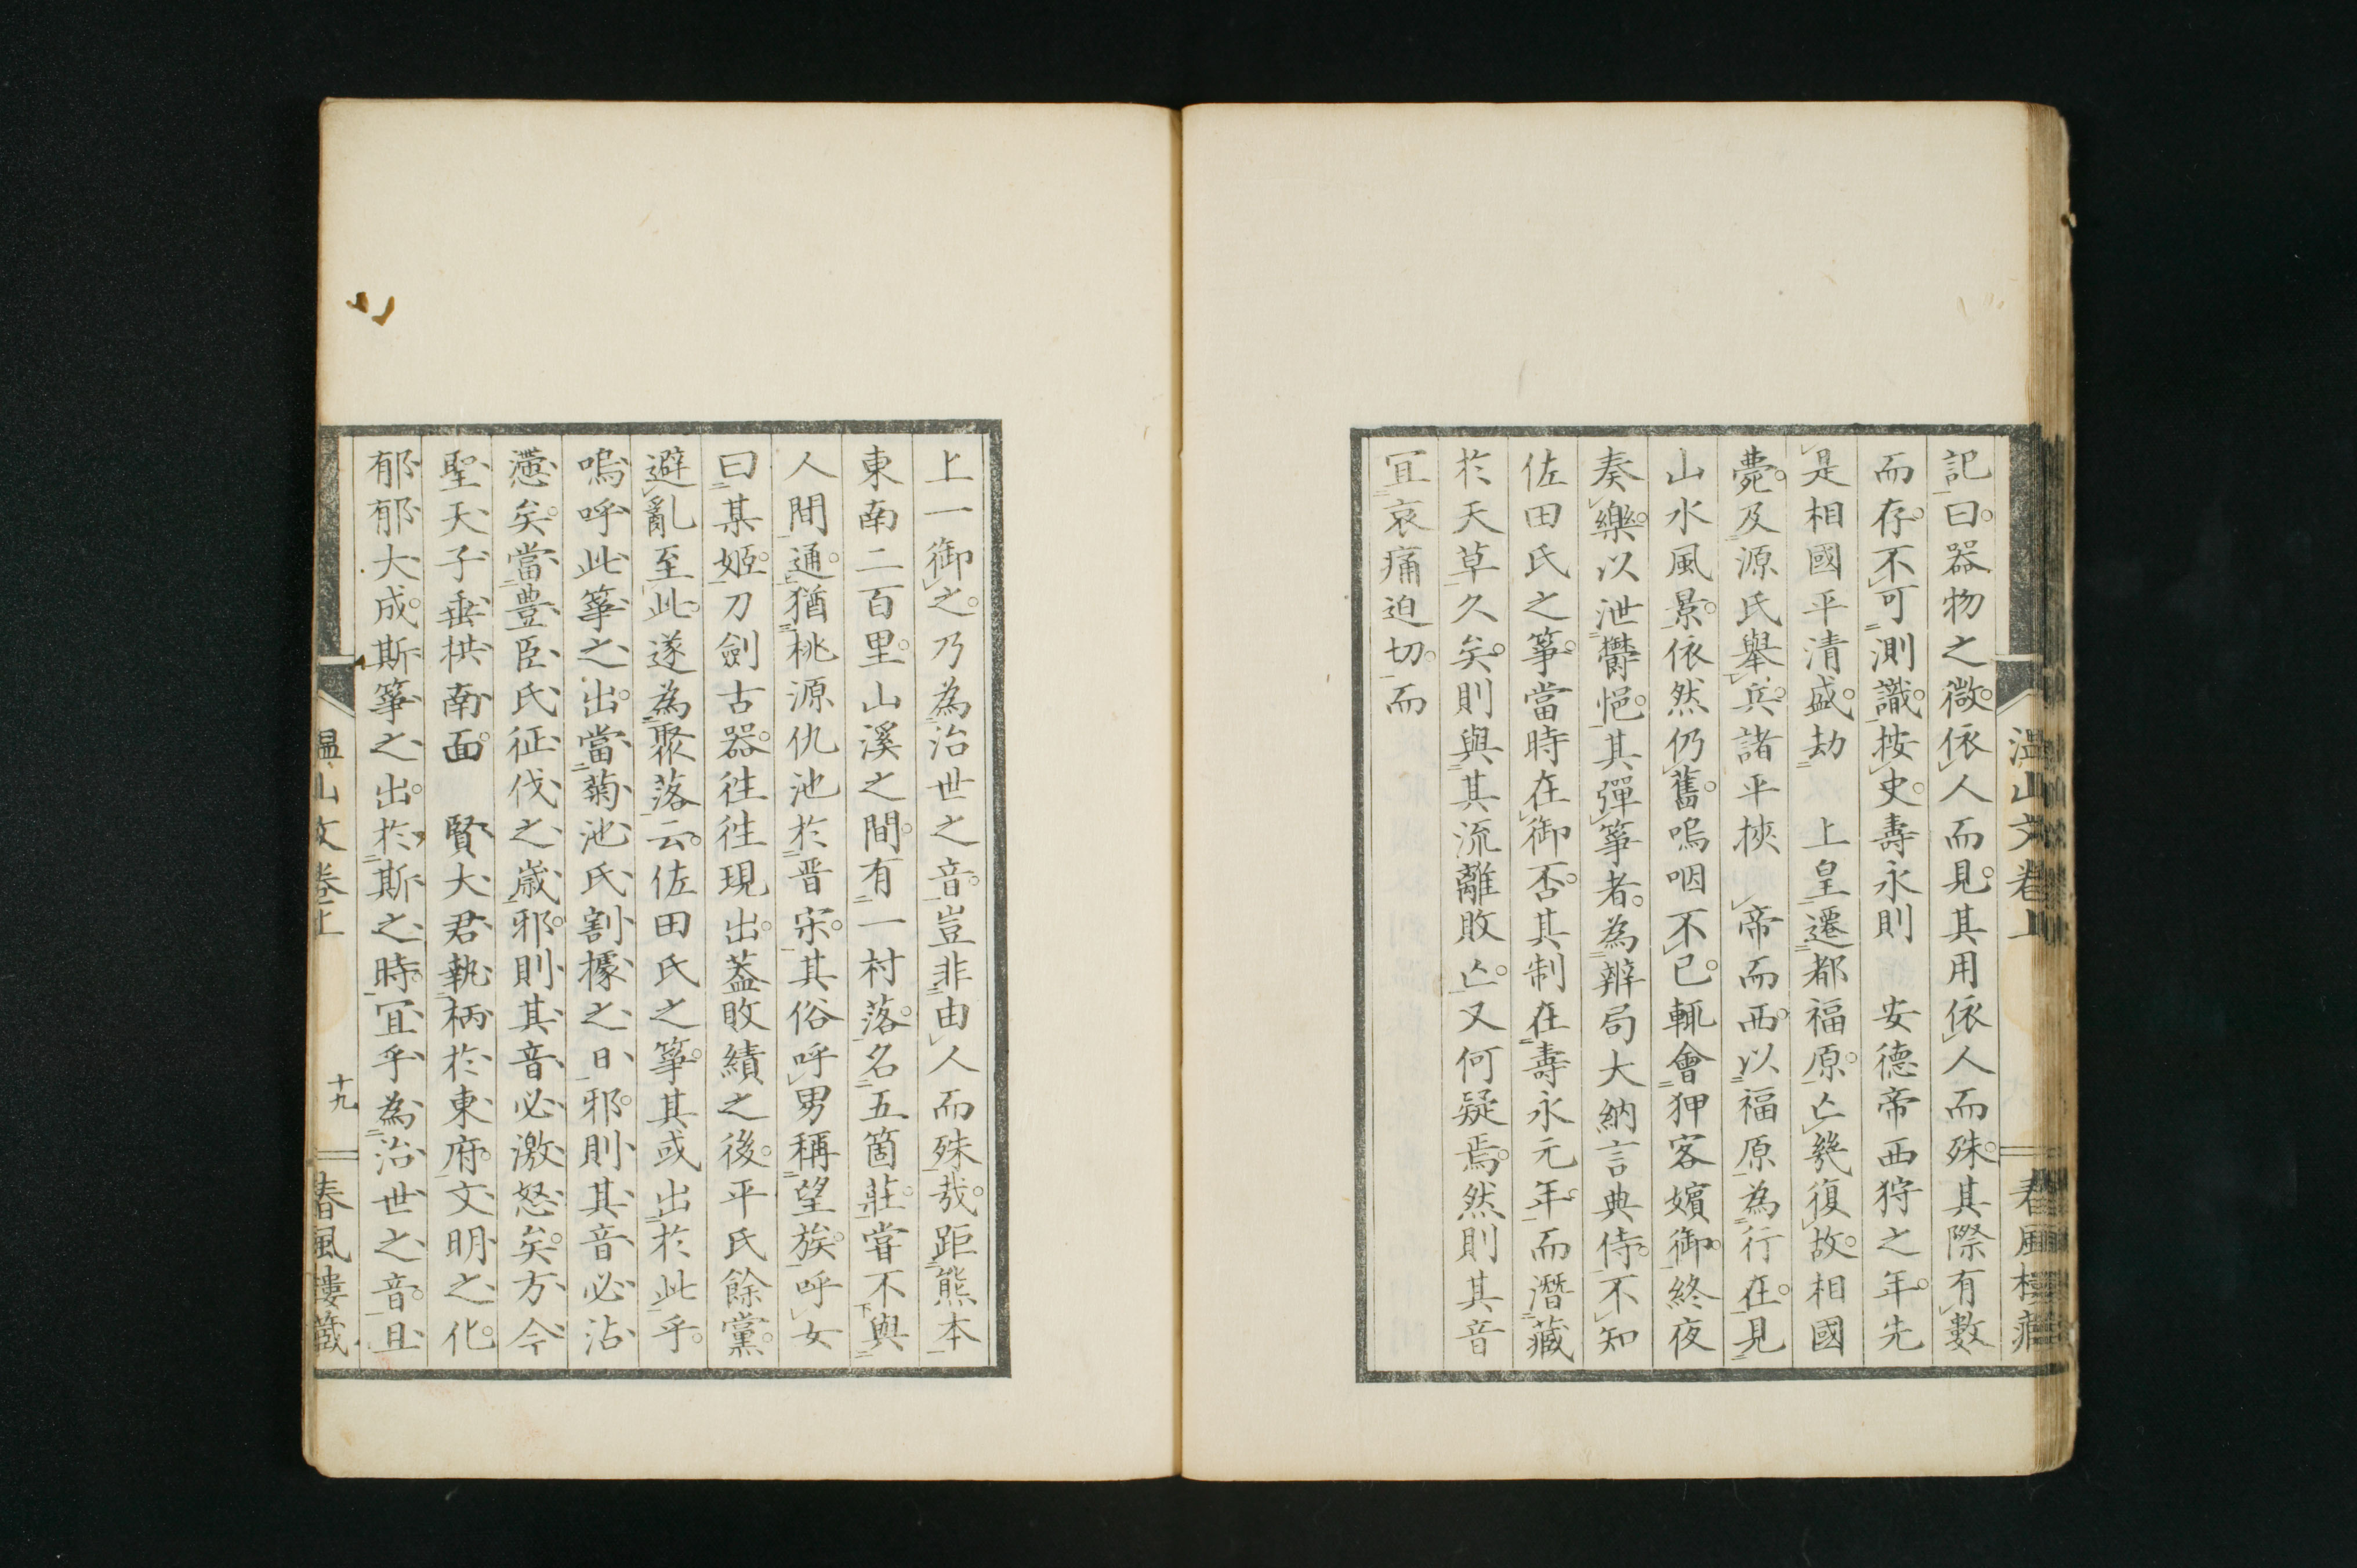 温山文卷上
春風樓藏
記曰。器物之微。依人而見。其用依人而殊。其際有數
而存。不可測識。按史。壽永則　安德帝西狩之年。先
是相國平清盛。劫　上皇遷都福原。亡幾復故。相國
薨。及源氏舉兵。諸平挾　帝而西。以福原為行在。見
山水風景。依然仍舊。嗚咽不已。輒會狎客嬪御。終夜
奏樂。以泄鬱悒。其彈箏者。為辨局大納言典侍。不知
佐田氏之箏。當時在御否。其制在壽永元年。而潛藏
於天草久矣。則與其流離敗亡。又何疑焉。然則其音
宜哀痛迫切。而
上一御之。乃為治世之音。豈非由人而殊哉。距熊本
東南二百里。山溪之間。有一村落。名五箇莊。嘗不與
人間通。猶桃源仇池於晋宋。其俗呼男稱望族。呼女
曰某姬。刀劍古器。往往現出。蓋敗績之後。平氏餘黨。
避亂至此。遂為聚落云。佐田氏之箏。其或出於此乎。
嗚呼此箏之出。當菊池氏割據之日邪。則其音必沾
懘矣。當豊臣氏征伐之歲邪。則其音必激怒矣。方今
聖天子垂拱南面。　賢大君執柄於東府。文明之化。
郁郁大成。斯箏之出。於斯之時。宜乎為治世之音。且
温山文卷上
十九
春風樓藏